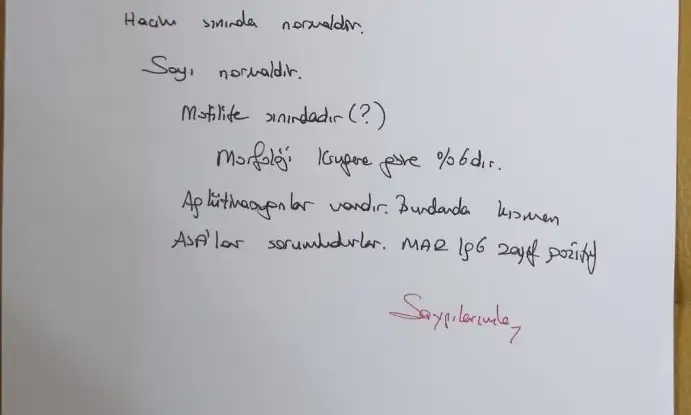 Hacim sınırda normaldir.
Sayı normaldir.
Motilite sınırdadır (?)
Morfoloji Krugere göre %6dır.
Aglütinasyonlar vardır. Bundanda kısmen
ASA'lar sorumludurlar. MAR IgG zayıf pozitif
Saygılarımla,